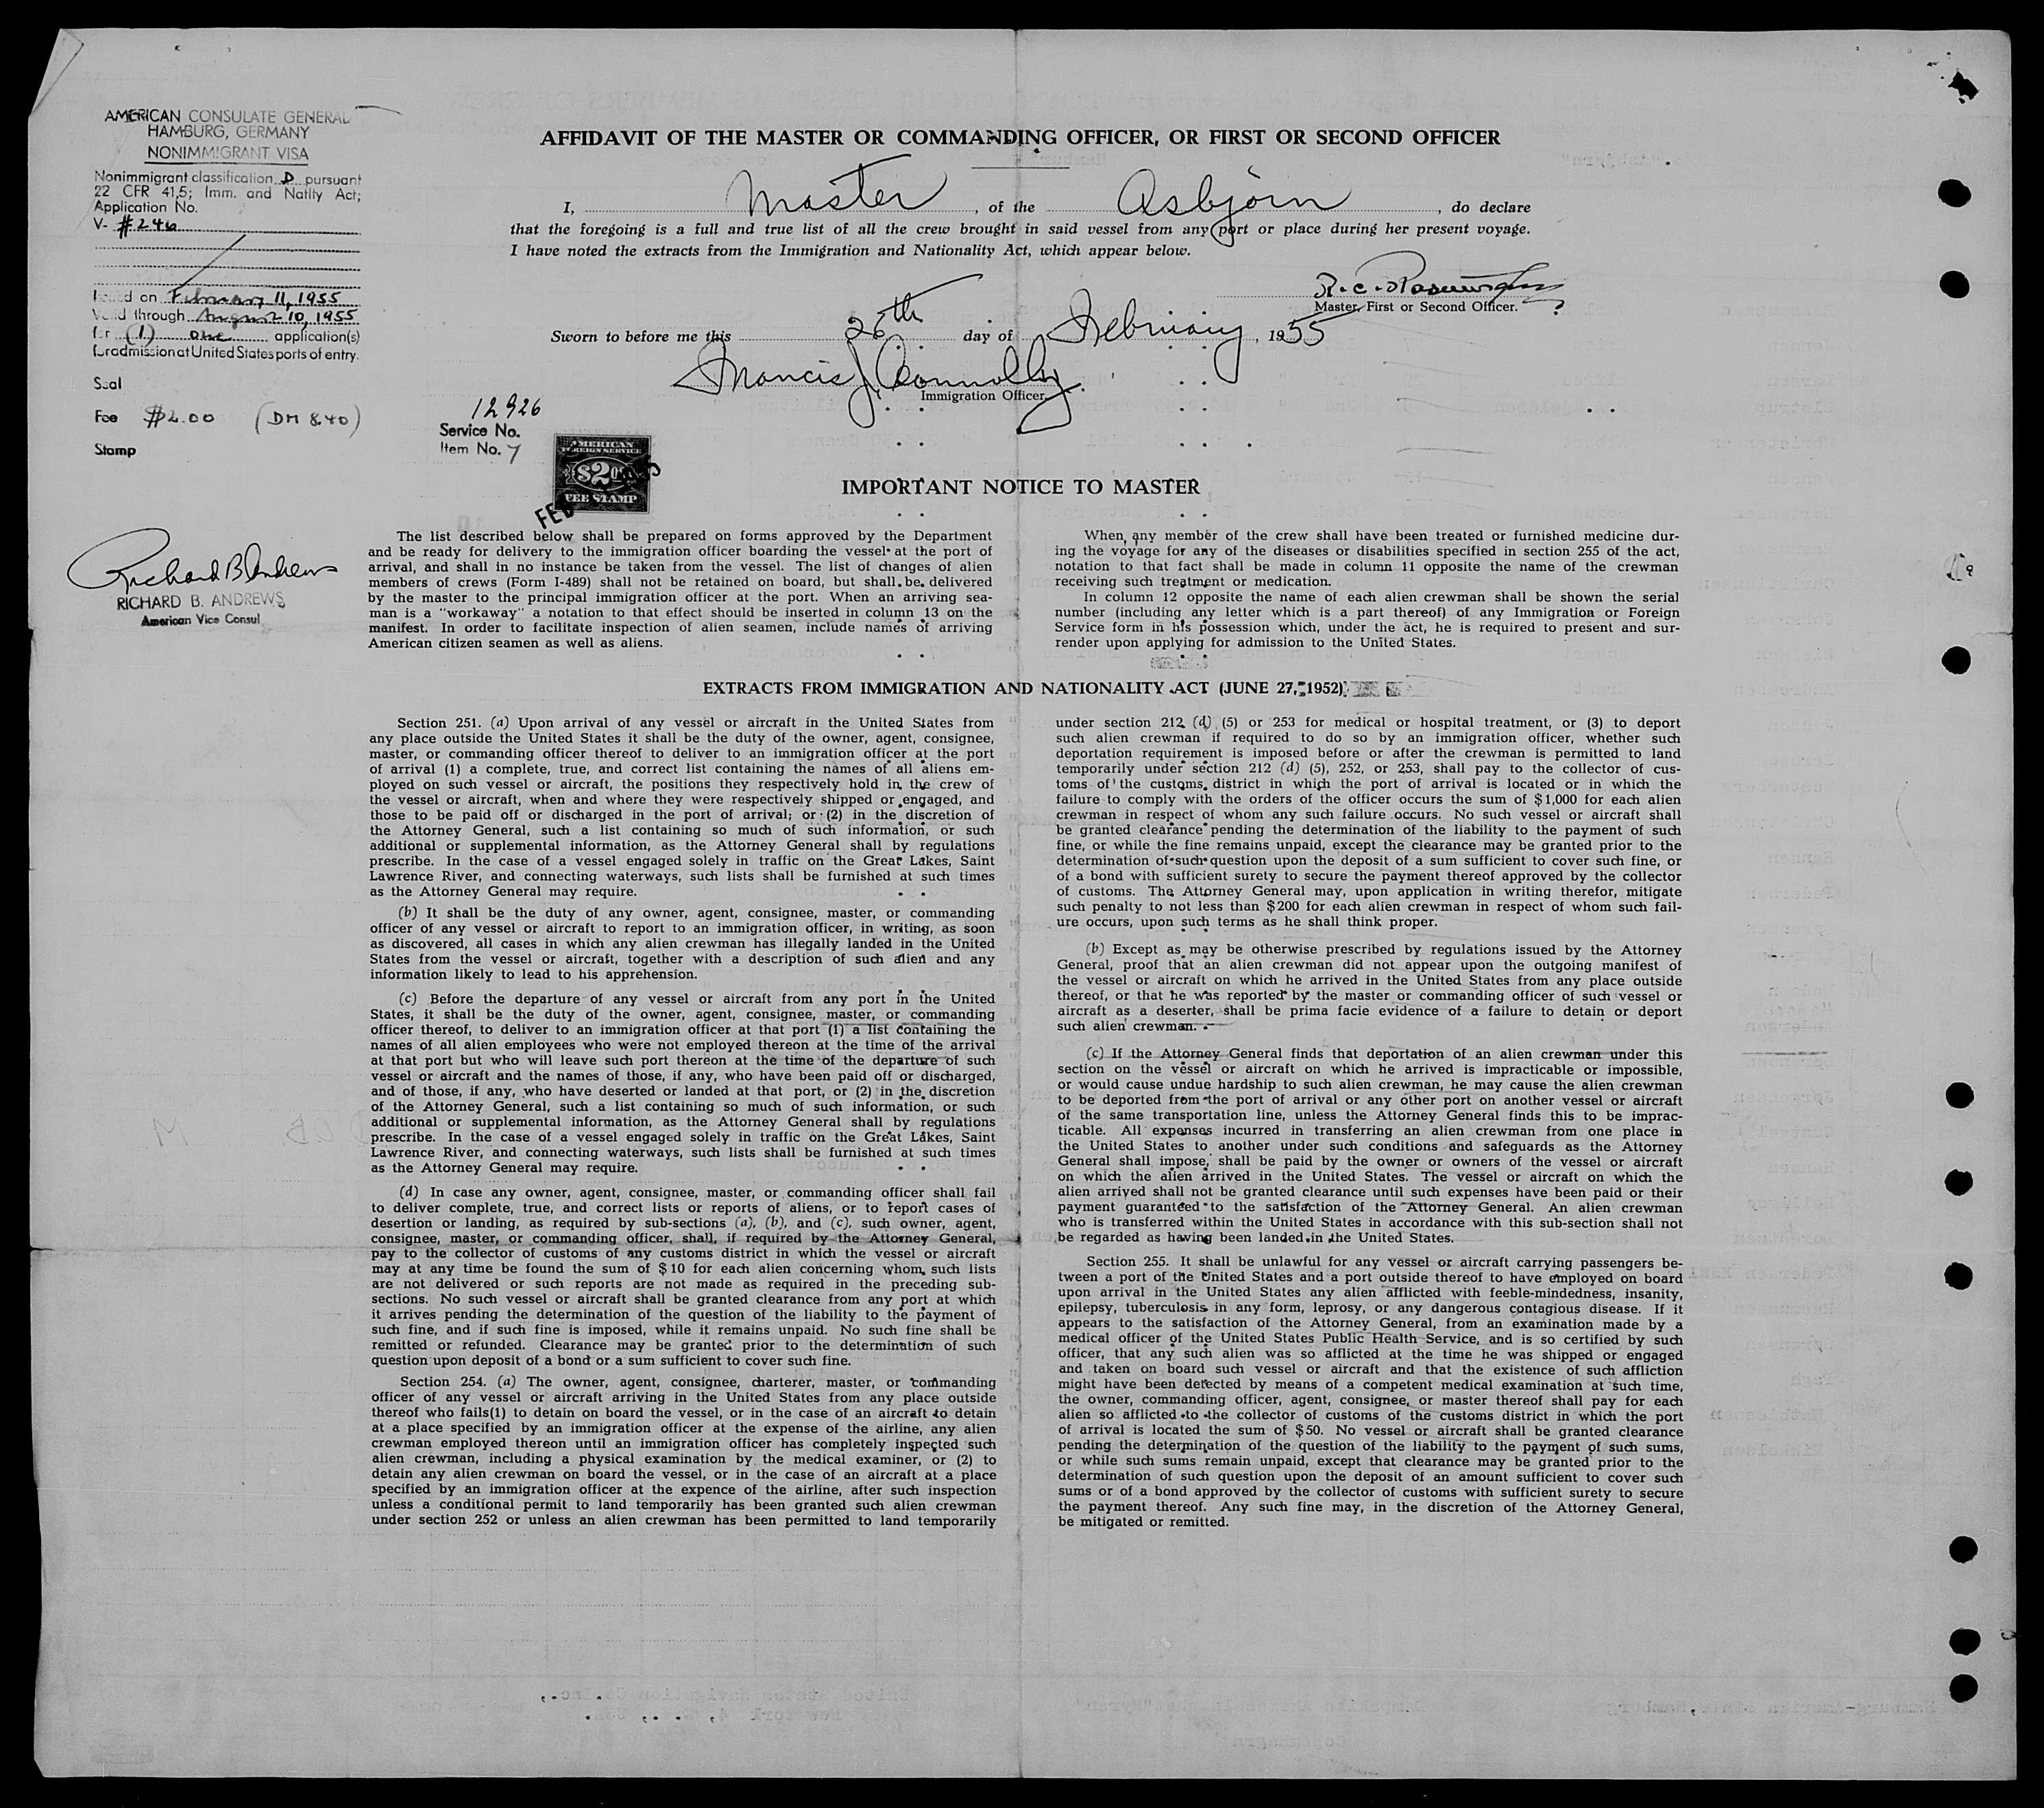 AMERICAN CONSULATE GENERAL
HAMBURG, GERMANY
NONIMMIGRANT VISA
Nonimmigrant classification D pursuant
22 CFR 41.5; Imm. and Natlty Act;
Application No.
V- #246
Issued on February 11, 1955
Valid through August 10, 1955
for (1) one application(s)
for admission at United States ports of entry.
Seal
Fee $2.00 (DM 8.40)
Stamp
12926
Service No.
Item No. 7
AMERICAN
FOREIGN SERVICE
$2.00
FEE STAMP
FEB
Richard B Andrews
RICHARD B. ANDREWS
American Vice Consul
AFFIDAVIT OF THE MASTER OR COMMANDING OFFICER, OR FIRST OR SECOND OFFICER
I, Master, of the Asbjörn, do declare
that the foregoing is a full and true list of all the crew brought in said vessel from any port or place during her present voyage.
I have noted the extracts from the Immigration and Nationality Act, which appear below.
Master, First or Second Officer.
Sworn to before me this 26th day of February, 1955
Francis J. Connolly
Immigration Officer.
IMPORTANT NOTICE TO MASTER
The list described below shall be prepared on forms approved by the Department
and be ready for delivery to the immigration officer boarding the vessel at the port of
arrival, and shall in no instance be taken from the vessel. The list of changes of alien
members of crews (Form I-489) shall not be retained on board, but shall be delivered
by the master to the principal immigration officer at the port. When an arriving sea-
man is a "workaway" a notation to that effect should be inserted in column 13 on the
manifest. In order to facilitate inspection of alien seamen, include names of arriving
American citizen seamen as well as aliens.
When any member of the crew shall have been treated or furnished medicine dur-
ing the voyage for any of the diseases or disabilities specified in section 255 of the act,
notation to that fact shall be made in column 11 opposite the name of the crewman
receiving such treatment or medication.
In column 12 opposite the name of each alien crewman shall be shown the serial
number (including any letter which is a part thereof) of any Immigration or Foreign
Service form in his possession which, under the act, he is required to present and sur-
render upon applying for admission to the United States.
EXTRACTS FROM IMMIGRATION AND NATIONALITY ACT (JUNE 27, 1952)
Section 251. (a) Upon arrival of any vessel or aircraft in the United States from
any place outside the United States it shall be the duty of the owner, agent, consignee,
master, or commanding officer thereof to deliver to an immigration officer at the port
of arrival (1) a complete, true, and correct list containing the names of all aliens em-
ployed on such vessel or aircraft, the positions they respectively hold in the crew of
the vessel or aircraft, when and where they were respectively shipped or engaged, and
those to be paid off or discharged in the port of arrival; or (2) in the discretion of
the Attorney General, such a list containing so much of such information, or such
additional or supplemental information, as the Attorney General shall by regulations
prescribe. In the case of a vessel engaged solely in traffic on the Great Lakes, Saint
Lawrence River, and connecting waterways, such lists shall be furnished at such times
as the Attorney General may require.
(b) It shall be the duty of any owner, agent, consignee, master, or commanding
officer of any vessel or aircraft to report to an immigration officer, in writing, as soon
as discovered, all cases in which any alien crewman has illegally landed in the United
States from the vessel or aircraft, together with a description of such alien and any
information likely to lead to his apprehension.
(c) Before the departure of any vessel or aircraft from any port in the United
States, it shall be the duty of the owner, agent, consignee, master, or commanding
officer thereof, to deliver to an immigration officer at that port (1) a list containing the
names of all alien employees who were not employed thereon at the time of the arrival
at that port but who will leave such port thereon at the time of the departure of such
vessel or aircraft and the names of those, if any, who have been paid off or discharged,
and of those, if any, who have deserted or landed at that port, or (2) in the discretion
of the Attorney General, such a list containing so much of such information, or such
additional or supplemental information, as the Attorney General shall by regulations
prescribe. In the case of a vessel engaged solely in traffic on the Great Lakes, Saint
Lawrence River, and connecting waterways, such lists shall be furnished at such times
as the Attorney General may require.
(d) In case any owner, agent, consignee, master, or commanding officer shall fail
to deliver complete, true, and correct lists or reports of aliens, or to report cases of
desertion or landing, as required by sub-sections (a), (b), and (c), such owner, agent,
consignee, master, or commanding officer, shall, if required by the Attorney General,
pay to the collector of customs of any customs district in which the vessel or aircraft
may at any time be found the sum of $10 for each alien concerning whom such lists
are not delivered or such reports are not made as required in the preceding sub-
sections. No such vessel or aircraft shall be granted clearance from any port at which
it arrives pending the determination of the question of the liability to the payment of
such fine, and if such fine is imposed, while it remains unpaid. No such fine shall be
remitted or refunded. Clearance may be granted prior to the determination of such
question upon deposit of a bond or a sum sufficient to cover such fine.
Section 254. (a) The owner, agent, consignee, charterer, master, or commanding
officer of any vessel or aircraft arriving in the United States from any place outside
thereof who fails(1) to detain on board the vessel, or in the case of an aircraft to detain
at a place specified by an immigration officer at the expense of the airline, any alien
crewman employed thereon until an immigration officer has completely inspected such
alien crewman, including a physical examination by the medical examiner, or (2) to
detain any alien crewman on board the vessel, or in the case of an aircraft at a place
specified by an immigration officer at the expence of the airline, after such inspection
unless a conditional permit to land temporarily has been granted such alien crewman
under section 252 or unless an alien crewman has been permitted to land temporarily
under section 212 (d) (5) or 253 for medical or hospital treatment, or (3) to deport
such alien crewman if required to do so by an immigration officer, whether such
deportation requirement is imposed before or after the crewman is permitted to land
temporarily under section 212 (d) (5), 252, or 253, shall pay to the collector of cus-
toms of the customs district in which the port of arrival is located or in which the
failure to comply with the orders of the officer occurs the sum of $1,000 for each alien
crewman in respect of whom any such failure occurs. No such vessel or aircraft shall
be granted clearance pending the determination of the liability to the payment of such
fine, or while the fine remains unpaid, except the clearance may be granted prior to the
determination of such question upon the deposit of a sum sufficient to cover such fine, or
of a bond with sufficient surety to secure the payment thereof approved by the collector
of customs. The Attorney General may, upon application in writing therefor, mitigate
such penalty to not less than $200 for each alien crewman in respect of whom such fail-
ure occurs, upon such terms as he shall think proper.
(b) Except as may be otherwise prescribed by regulations issued by the Attorney
General, proof that an alien crewman did not appear upon the outgoing manifest of
the vessel or aircraft on which he arrived in the United States from any place outside
thereof, or that he was reported by the master or commanding officer of such vessel or
aircraft as a deserter, shall be prima facie evidence of a failure to detain or deport
such alien crewman.
(c) If the Attorney General finds that deportation of an alien crewman under this
section on the vessel or aircraft on which he arrived is impracticable or impossible,
or would cause undue hardship to such alien crewman, he may cause the alien crewman
to be deported from the port of arrival or any other port on another vessel or aircraft
of the same transportation line, unless the Attorney General finds this to be imprac-
ticable. All expenses incurred in transferring an alien crewman from one place in
the United States to another under such conditions and safeguards as the Attorney
General shall impose, shall be paid by the owner or owners of the vessel or aircraft
on which the alien arrived in the United States. The vessel or aircraft on which the
alien arrived shall not be granted clearance until such expenses have been paid or their
payment guaranteed to the satisfaction of the Attorney General. An alien crewman
who is transferred within the United States in accordance with this sub-section shall not
be regarded as having been landed in the United States.
Section 255. It shall be unlawful for any vessel or aircraft carrying passengers be-
tween a port of the United States and a port outside thereof to have employed on board
upon arrival in the United States any alien afflicted with feeble-mindedness, insanity,
epilepsy, tuberculosis in any form, leprosy, or any dangerous contagious disease. If it
appears to the satisfaction of the Attorney General, from an examination made by a
medical officer of the United States Public Health Service, and is so certified by such
officer, that any such alien was so afflicted at the time he was shipped or engaged
and taken on board such vessel or aircraft and that the existence of such affliction
might have been detected by means of a competent medical examination at such time,
the owner, commanding officer, agent, consignee, or master thereof shall pay for each
alien so afflicted to the collector of customs of the customs district in which the port
of arrival is located the sum of $50. No vessel or aircraft shall be granted clearance
pending the determination of the question of the liability to the payment of such sums,
or while such sums remain unpaid, except that clearance may be granted prior to the
determination of such question upon the deposit of an amount sufficient to cover such
sums or of a bond approved by the collector of customs with sufficient surety to secure
the payment thereof. Any such fine may, in the discretion of the Attorney General,
be mitigated or remitted.